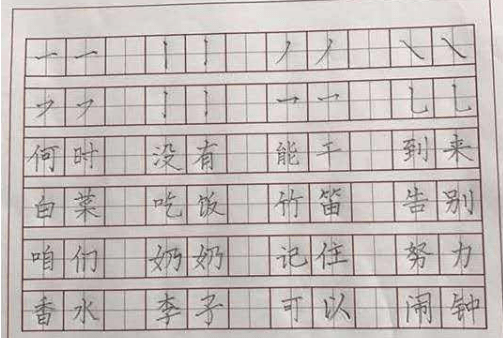 一 一 丨 丨 丿 丿 ㇏ ㇏
何时 没有 能干 到来
白菜 吃饭 竹笛 告别
咱们 奶奶 记住 努力
香水 李子 可以 闹钟